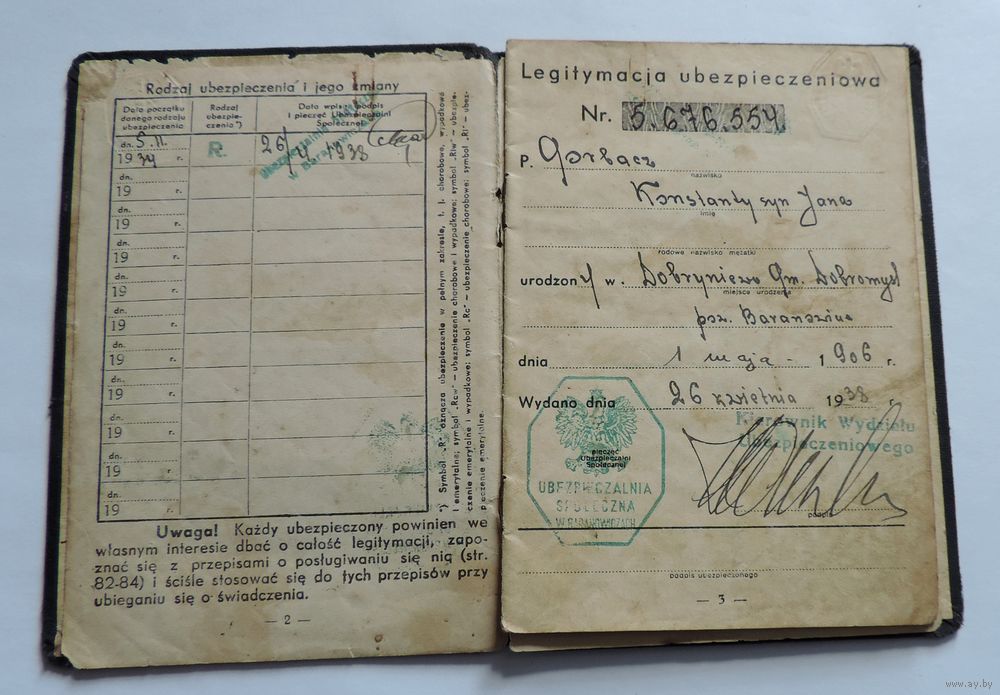 Rodzaj ubezpieczenia i jego zmiany
Data początku danego rodzaju ubezpieczenia
Rodzaj ubezpie- czenia*)
Data wpisu i podpis i pieczęć Ubezpieczalni Społecznej
dn. 5.II.
1934 r.
R.
26/ 1938
w Baranowiczach
dn.
19 r.
dn.
19 r.
dn.
19 r.
dn.
19 r.
dn.
19 r.
dn.
19 r.
dn.
19 r.
dn.
19 r.
dn.
19 r.
dn.
19 r.
*) Symbol „R" oznacza ubezpieczenie w pełnym zakresie, t. j. chorobowe, wypadkowe
i emerytalne; symbol „Rcw" — ubezpieczenie chorobowe i wypadkowe; symbol „Rc" — ubezpieczenie chorobowe; symbol „Rl" — ubez-
pieczenie emerytalne.
Uwaga! Każdy ubezpieczony powinien we
własnym interesie dbać o całość legitymacji, zapo-
znać się z przepisami o posługiwaniu się nią (str.
82-84) i ściśle stosować się do tych przepisów przy
ubieganiu się o świadczenia.
— 2 —
Legitymacja ubezpieczeniowa
Nr. 5.676.554
P. Gorbacz
nazwisko
Konstanty syn Jana
imię
rodowe nazwisko mężatki
urodzony w. Dobryniewo Gm. Dobromyśl
miejsce urodzenia
Baranowicze
dnia 1 maja 1906 r.
Wydano dnia 26 kwietnia 1938 r.
Kierownik Wydziału
Ubezpieczeniowego
pieczęć
Ubezpieczalni
Społecznej
UBEZPIECZALNIA
SPOŁECZNA
W BARANOWICZACH
podpis
podpis ubezpieczonego
— 3 —
www.ay.by